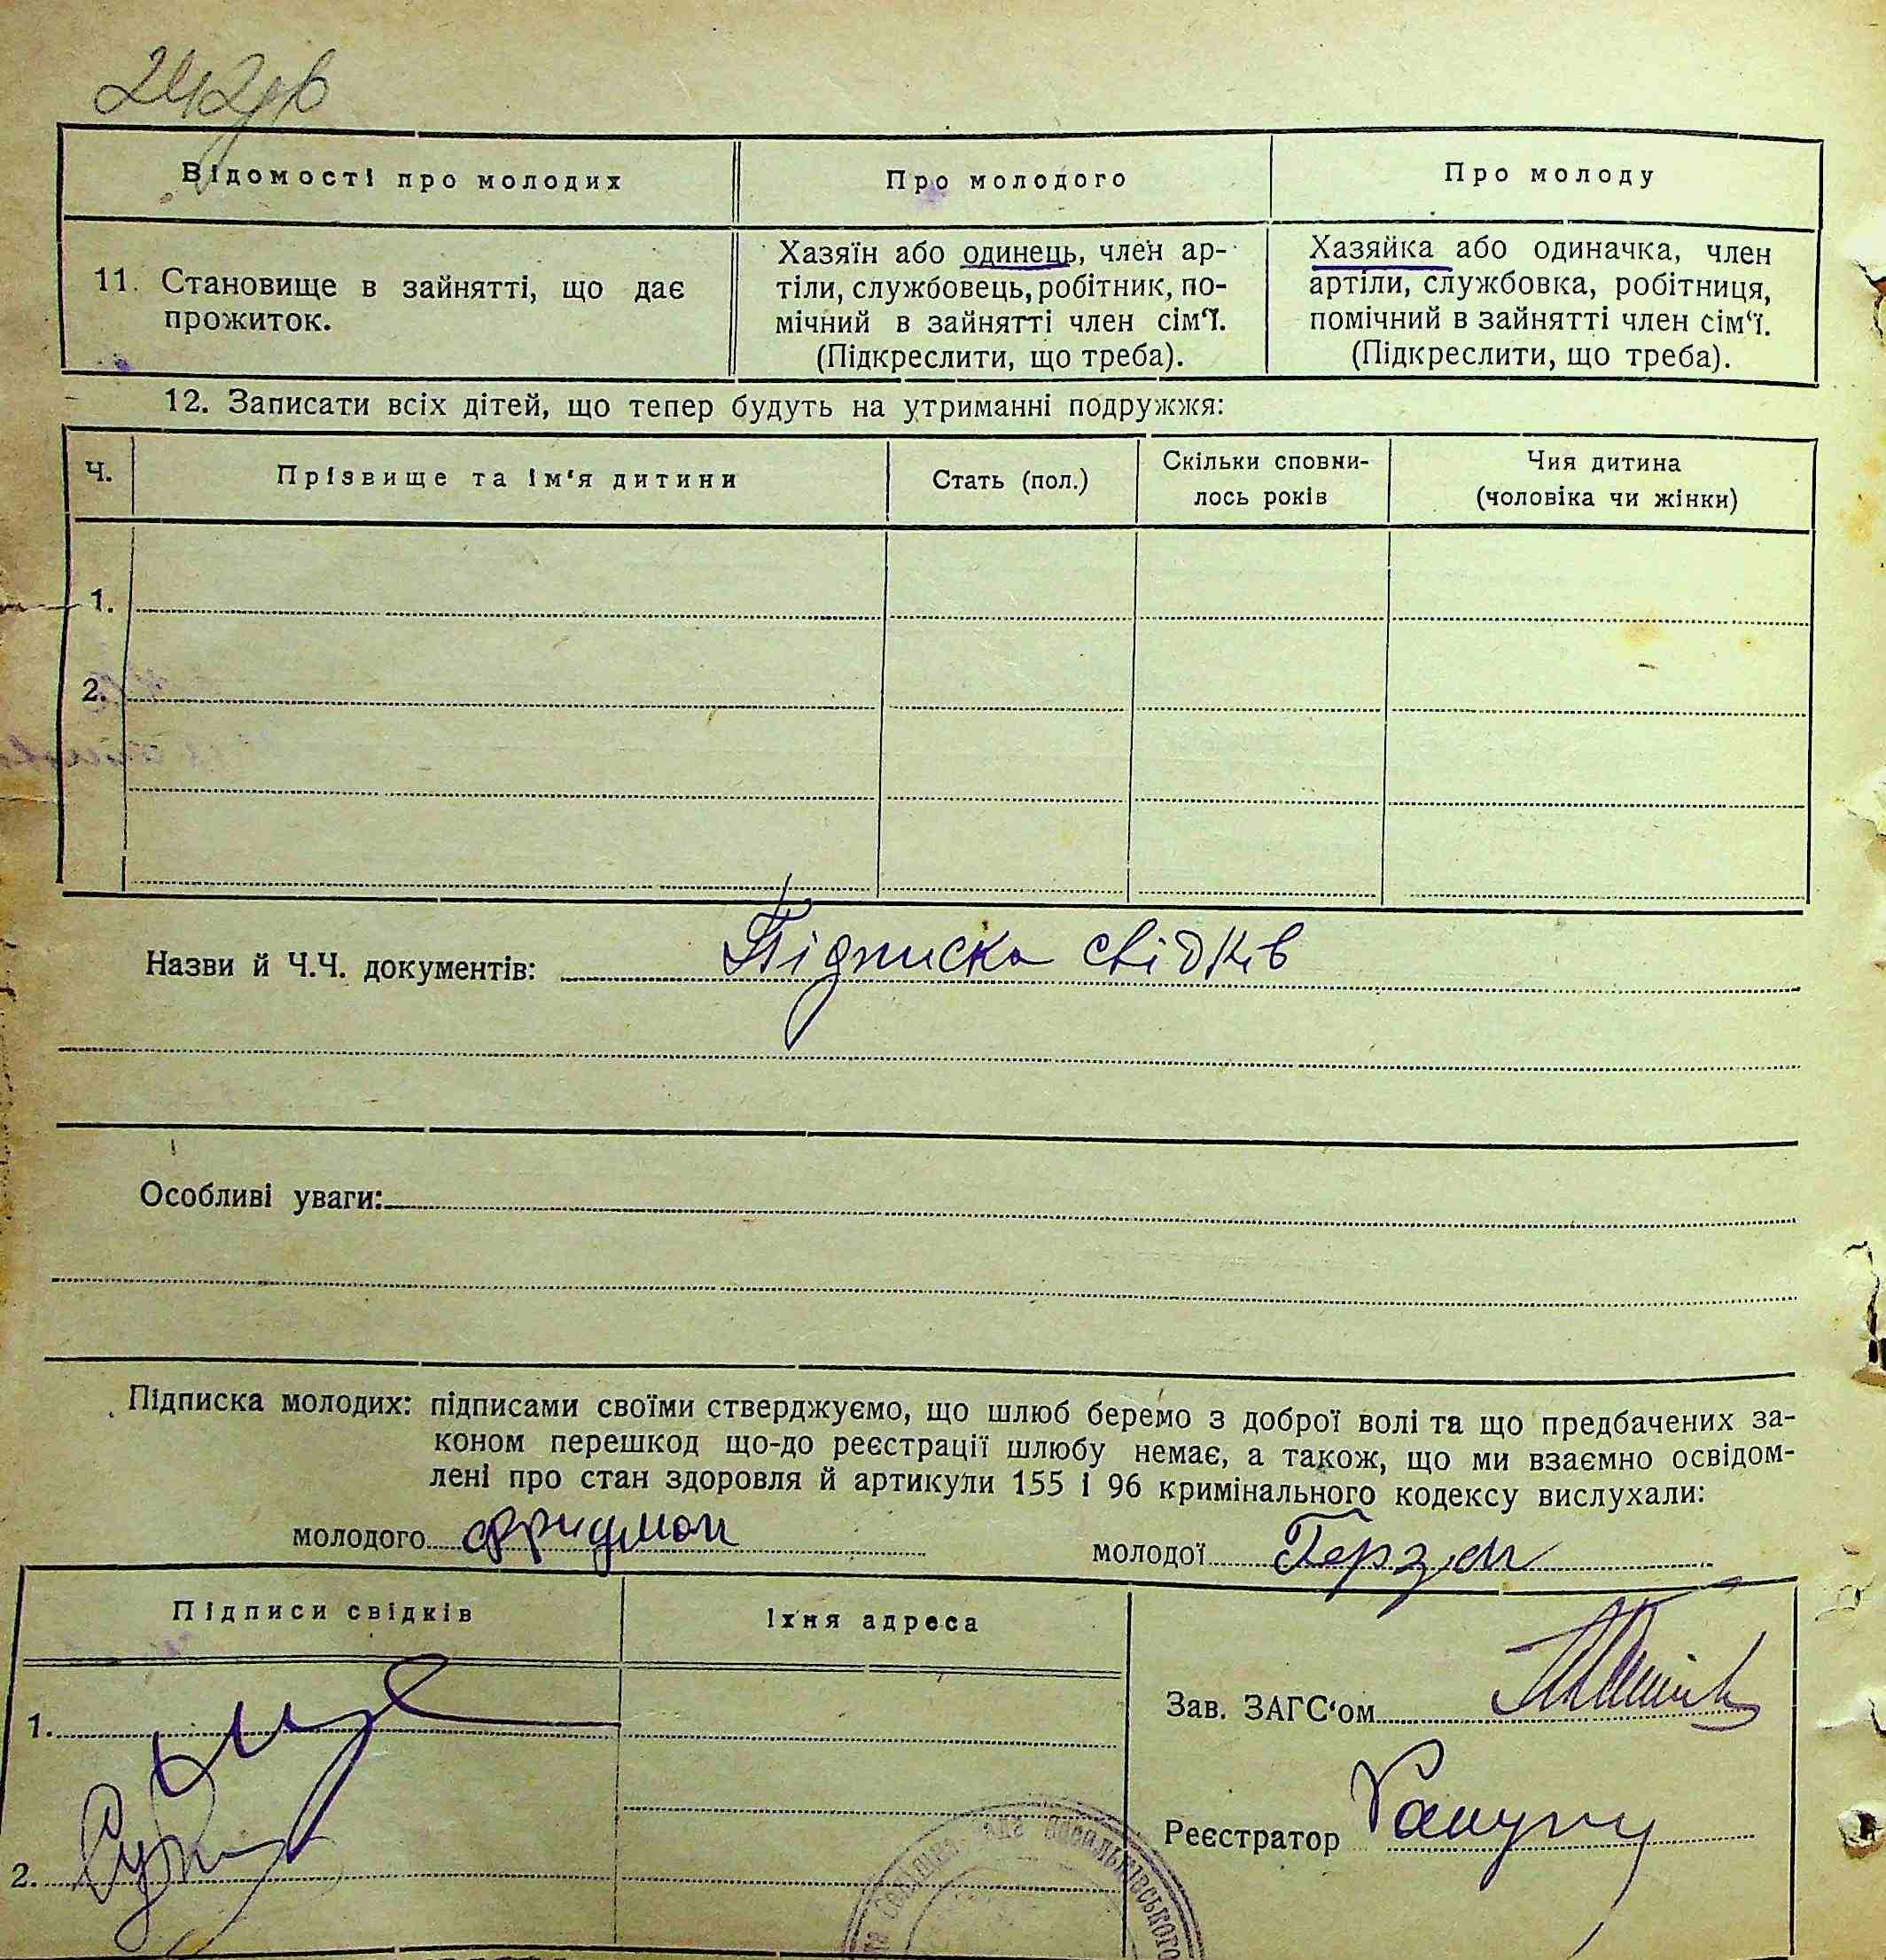 Відомості про молодих
Про молодого
Про молоду
11. Становище в зайнятті, що дає
прожиток.
Хазяїн або одинець, член ар-
тіли, службовець, робітник, по-
мічний в зайнятті член сім'ї.
(Підкреслити, що треба).
Хазяйка або одиначка, член
артіли, службовка, робітниця,
помічний в зайнятті член сім'ї.
(Підкреслити, що треба).
12. Записати всіх дітей, що тепер будуть на утриманні подружжя:
Ч.
Прізвище та ім'я дитини
Стать (пол.)
Скільки сповни-
лось років
Чия дитина
(чоловіка чи жінки)
1.
2.
Назви й Ч.Ч. документів: Підписка свідків
Особливі уваги:
Підписка молодих: підписами своїми стверджуємо, що шлюб беремо з доброї волі та що предбачених за-
коном перешкод що-до реєстрації шлюбу немає, а також, що ми взаємно освідом-
лені про стан здоровля й артикули 155 і 96 кримінального кодексу вислухали:
молодого Фридман
молодої Герзон
Підписи свідків
Їхня адреса
1.
2.
Зав. ЗАГС'ом
Реєстратор